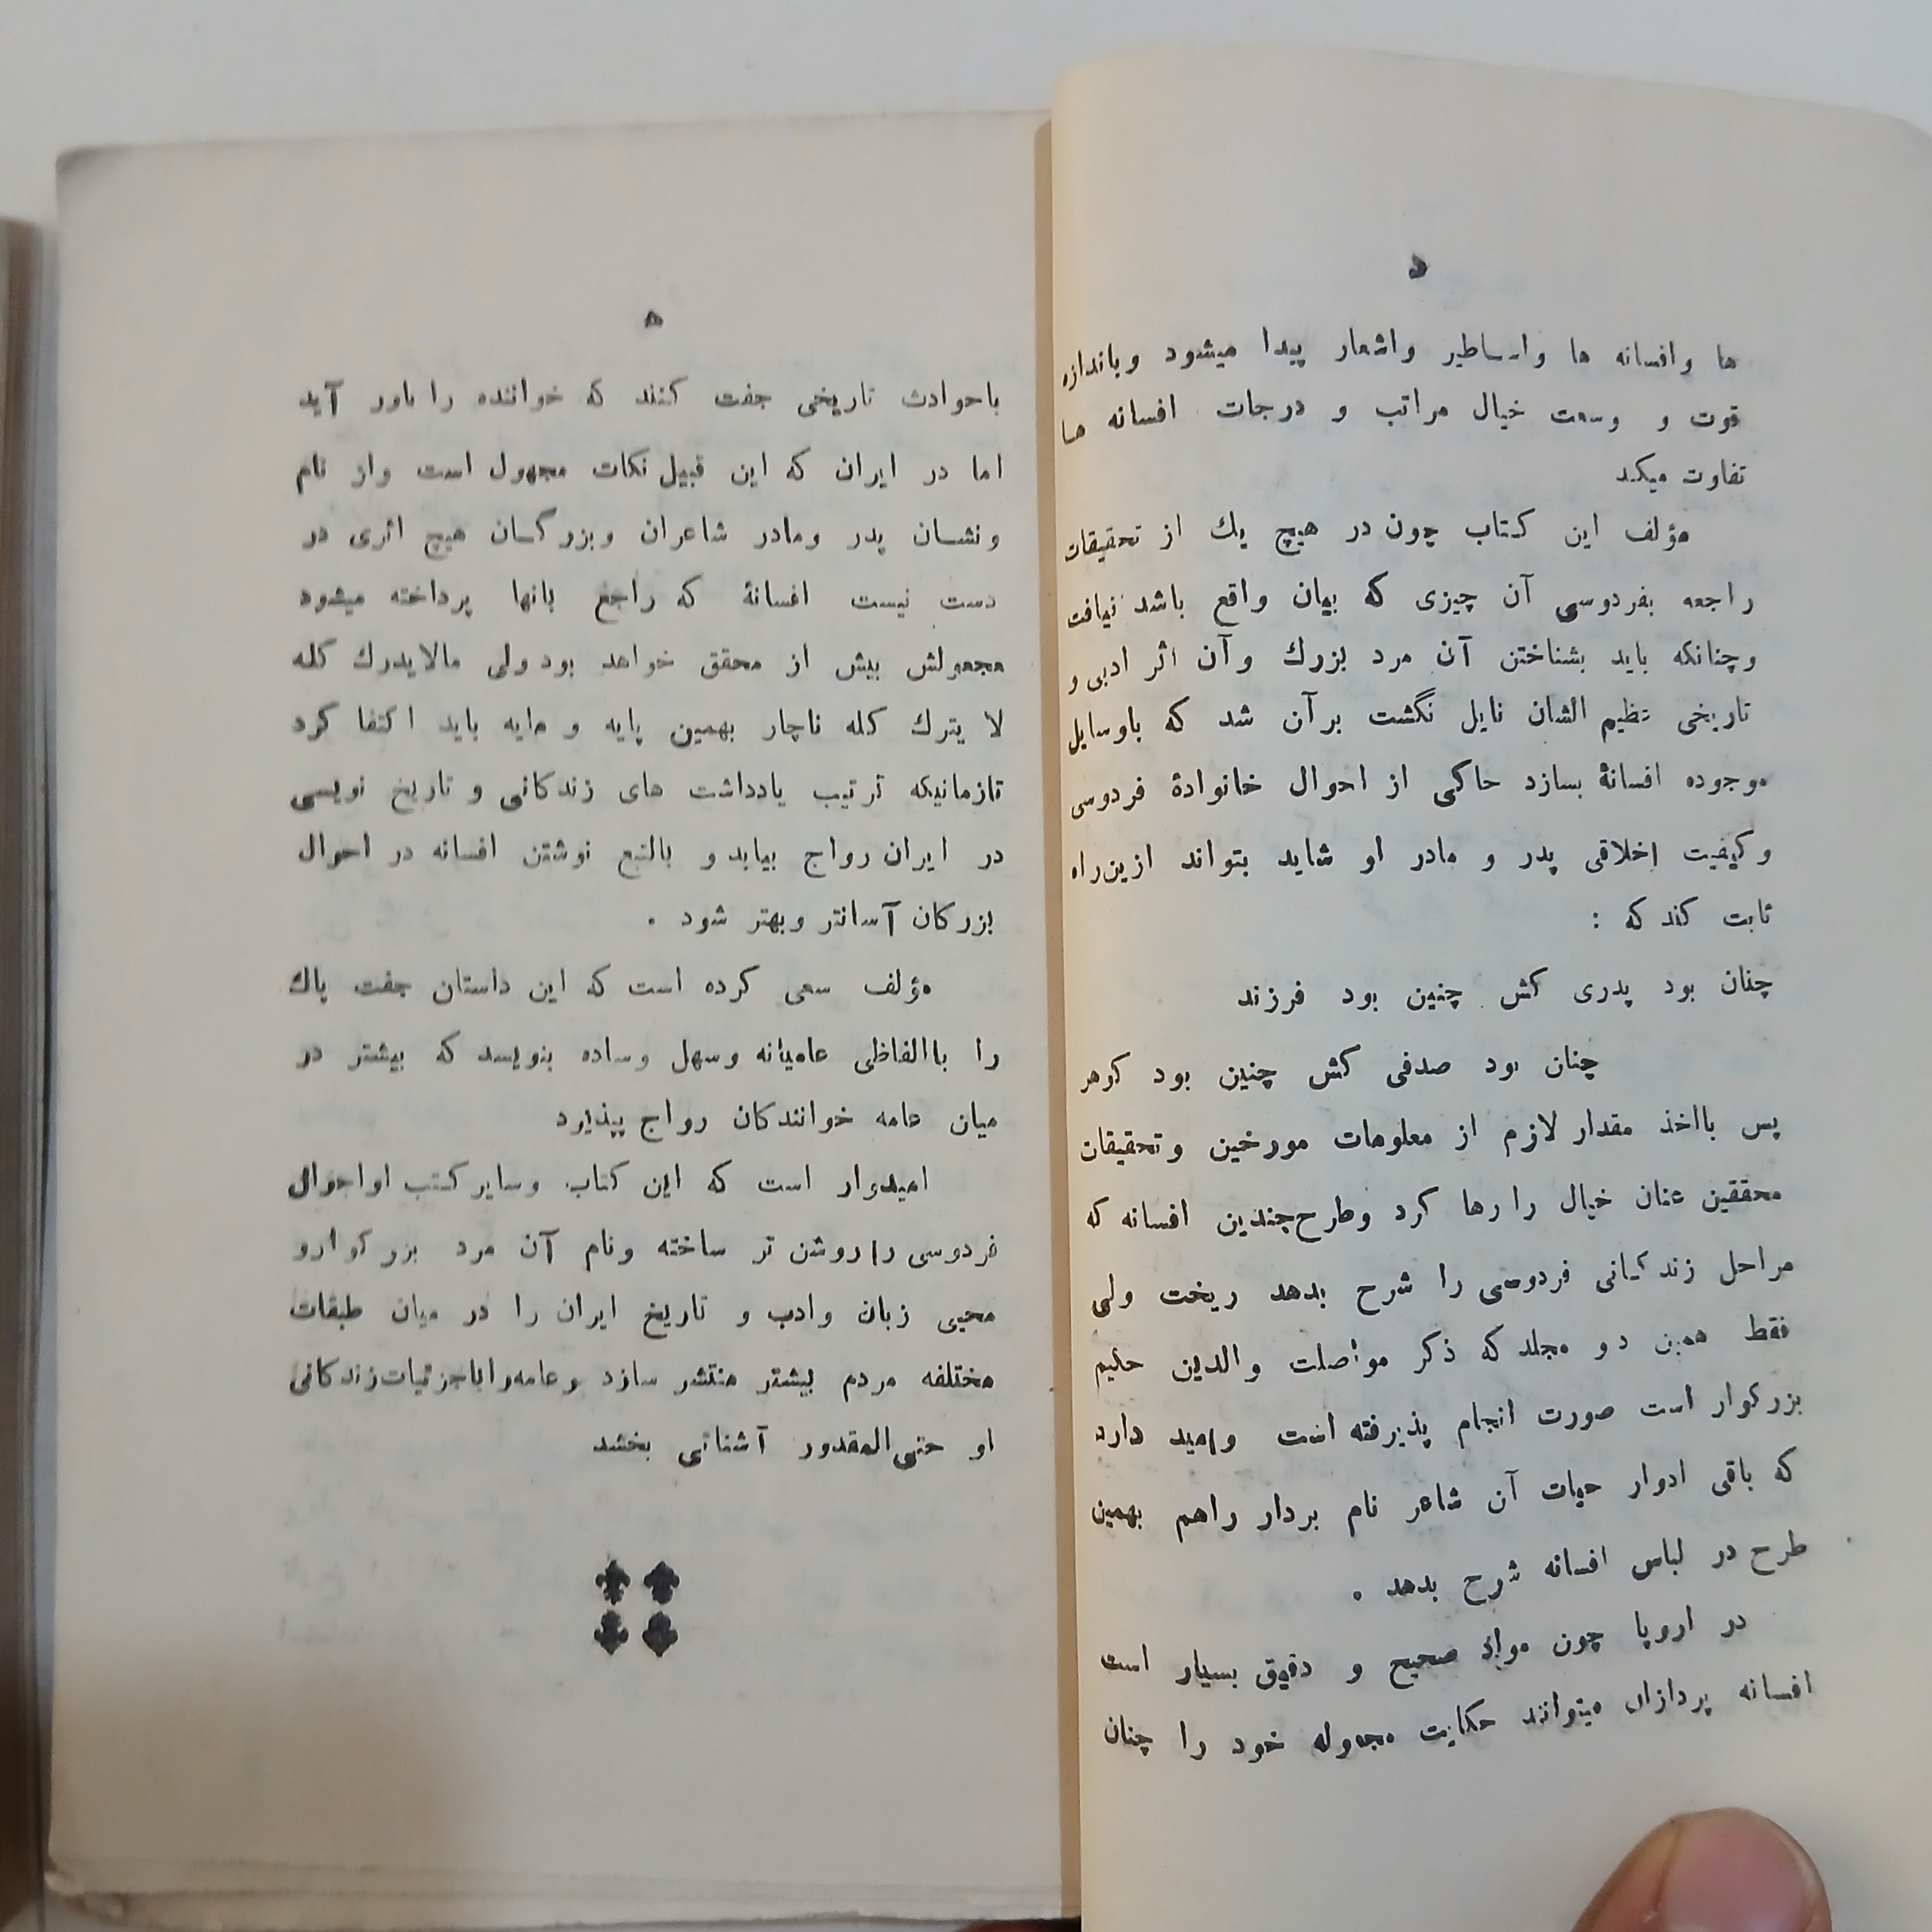 د
ها وافسانه ها واساطیر واشعار پیدا میشود وباندازه
قوت و وسعت خیال مراتب و درجات افسانه ها
تفاوت میکند
مؤلف این کتاب چون در هیچ یك از تحقیقات
راجعه بفردوسی آن چیزی که بیان واقع باشد نیافت
وچنانکه باید بشناختن آن مرد بزرك وآن اثر ادبی و
تاریخی عظیم الشان نایل نگشت برآن شد که باوسایل
موجوده افسانهٔ بسازد حاکی از احوال خانوادهٔ فردوسی
وکیفیت اخلاقی پدر و مادر او شاید بتواند ازین‌راه
ثابت کند که :
چنان بود پدری کش چنین بود فرزند
چنان بود صدفی کش چنین بود کوهر
پس بااخذ مقدار لازم از معلومات مورخین وتحقیقات
محققین عنان خیال را رها کرد وطرح‌چندین افسانه که
مراحل زندکانی فردوسی را شرح بدهد ریخت ولی
فقط همین دو مجلد که ذکر مواصلت والدین حکیم
بزرکوار است صورت انجام پذیرفته است وامید دارد
که باقی ادوار حیات آن شاعر نام بردار راهم بهمین
طرح در لباس افسانه شرح بدهد .
در اروپا چون مواد صحیح و دقیق بسیار است
افسانه پردازان میتوانند حکایت مجعوله خود را چنان
ه
باحوادث تاریخی جفت کنند که خواننده را باور آید
اما در ایران که این قبیل نکات مجهول است واز نام
ونشان پدر ومادر شاعران وبزرکان هیچ اثری در
دست نیست افسانهٔ که راجع بانها پرداخته میشود
مجعولش بیش از محقق خواهد بود ولی مالایدرك کله
لا یترك کله ناچار بهمین پایه و مایه باید اکتفا کرد
تازمانیکه ترتیب یادداشت های زندکانی و تاریخ نویسی
در ایران رواج بیابد و بالتبع نوشتن افسانه در احوال
بزرکان آسانتر وبهتر شود .
مؤلف سعی کرده است که این داستان جفت پاك
را باالفاظی عامیانه وسهل وساده بنویسد که بیشتر در
میان عامه خوانندکان رواج پپذیرد
امیدوار است که این کتاب وسایر کتب او احوال
فردوسی را روشن تر ساخته ونام آن مرد بزرکوارو
محیی زبان وادب و تاریخ ایران را در میان طبقات
مختلفه مردم بیشتر منتشر سازد وعامه‌راباجزئیات‌زندکانی
او حتی‌المقدور آشنائی بخشد